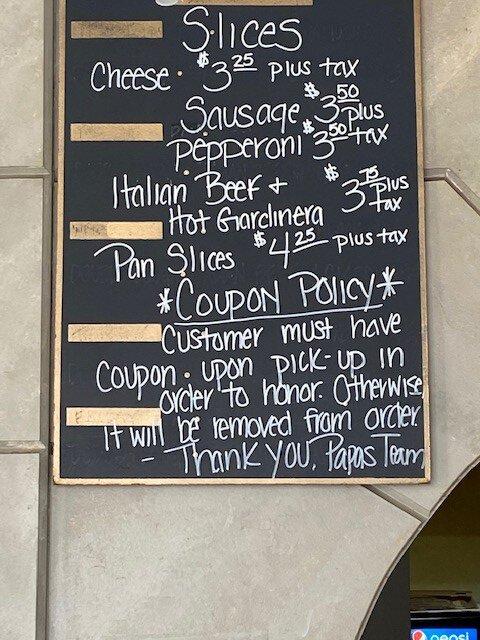 Slices
Cheese $3.25 plus tax
Sausage $3.50 plus
Pepperoni $3.50 tax
Italian Beef + $3.75 plus
Hot Giardinera tax
Pan Slices $4.25 plus tax
*Coupon Policy*
Customer must have
coupon upon pick-up in
order to honor. Otherwise,
it will be removed from order.
- Thank you, Papas Team
pepsi